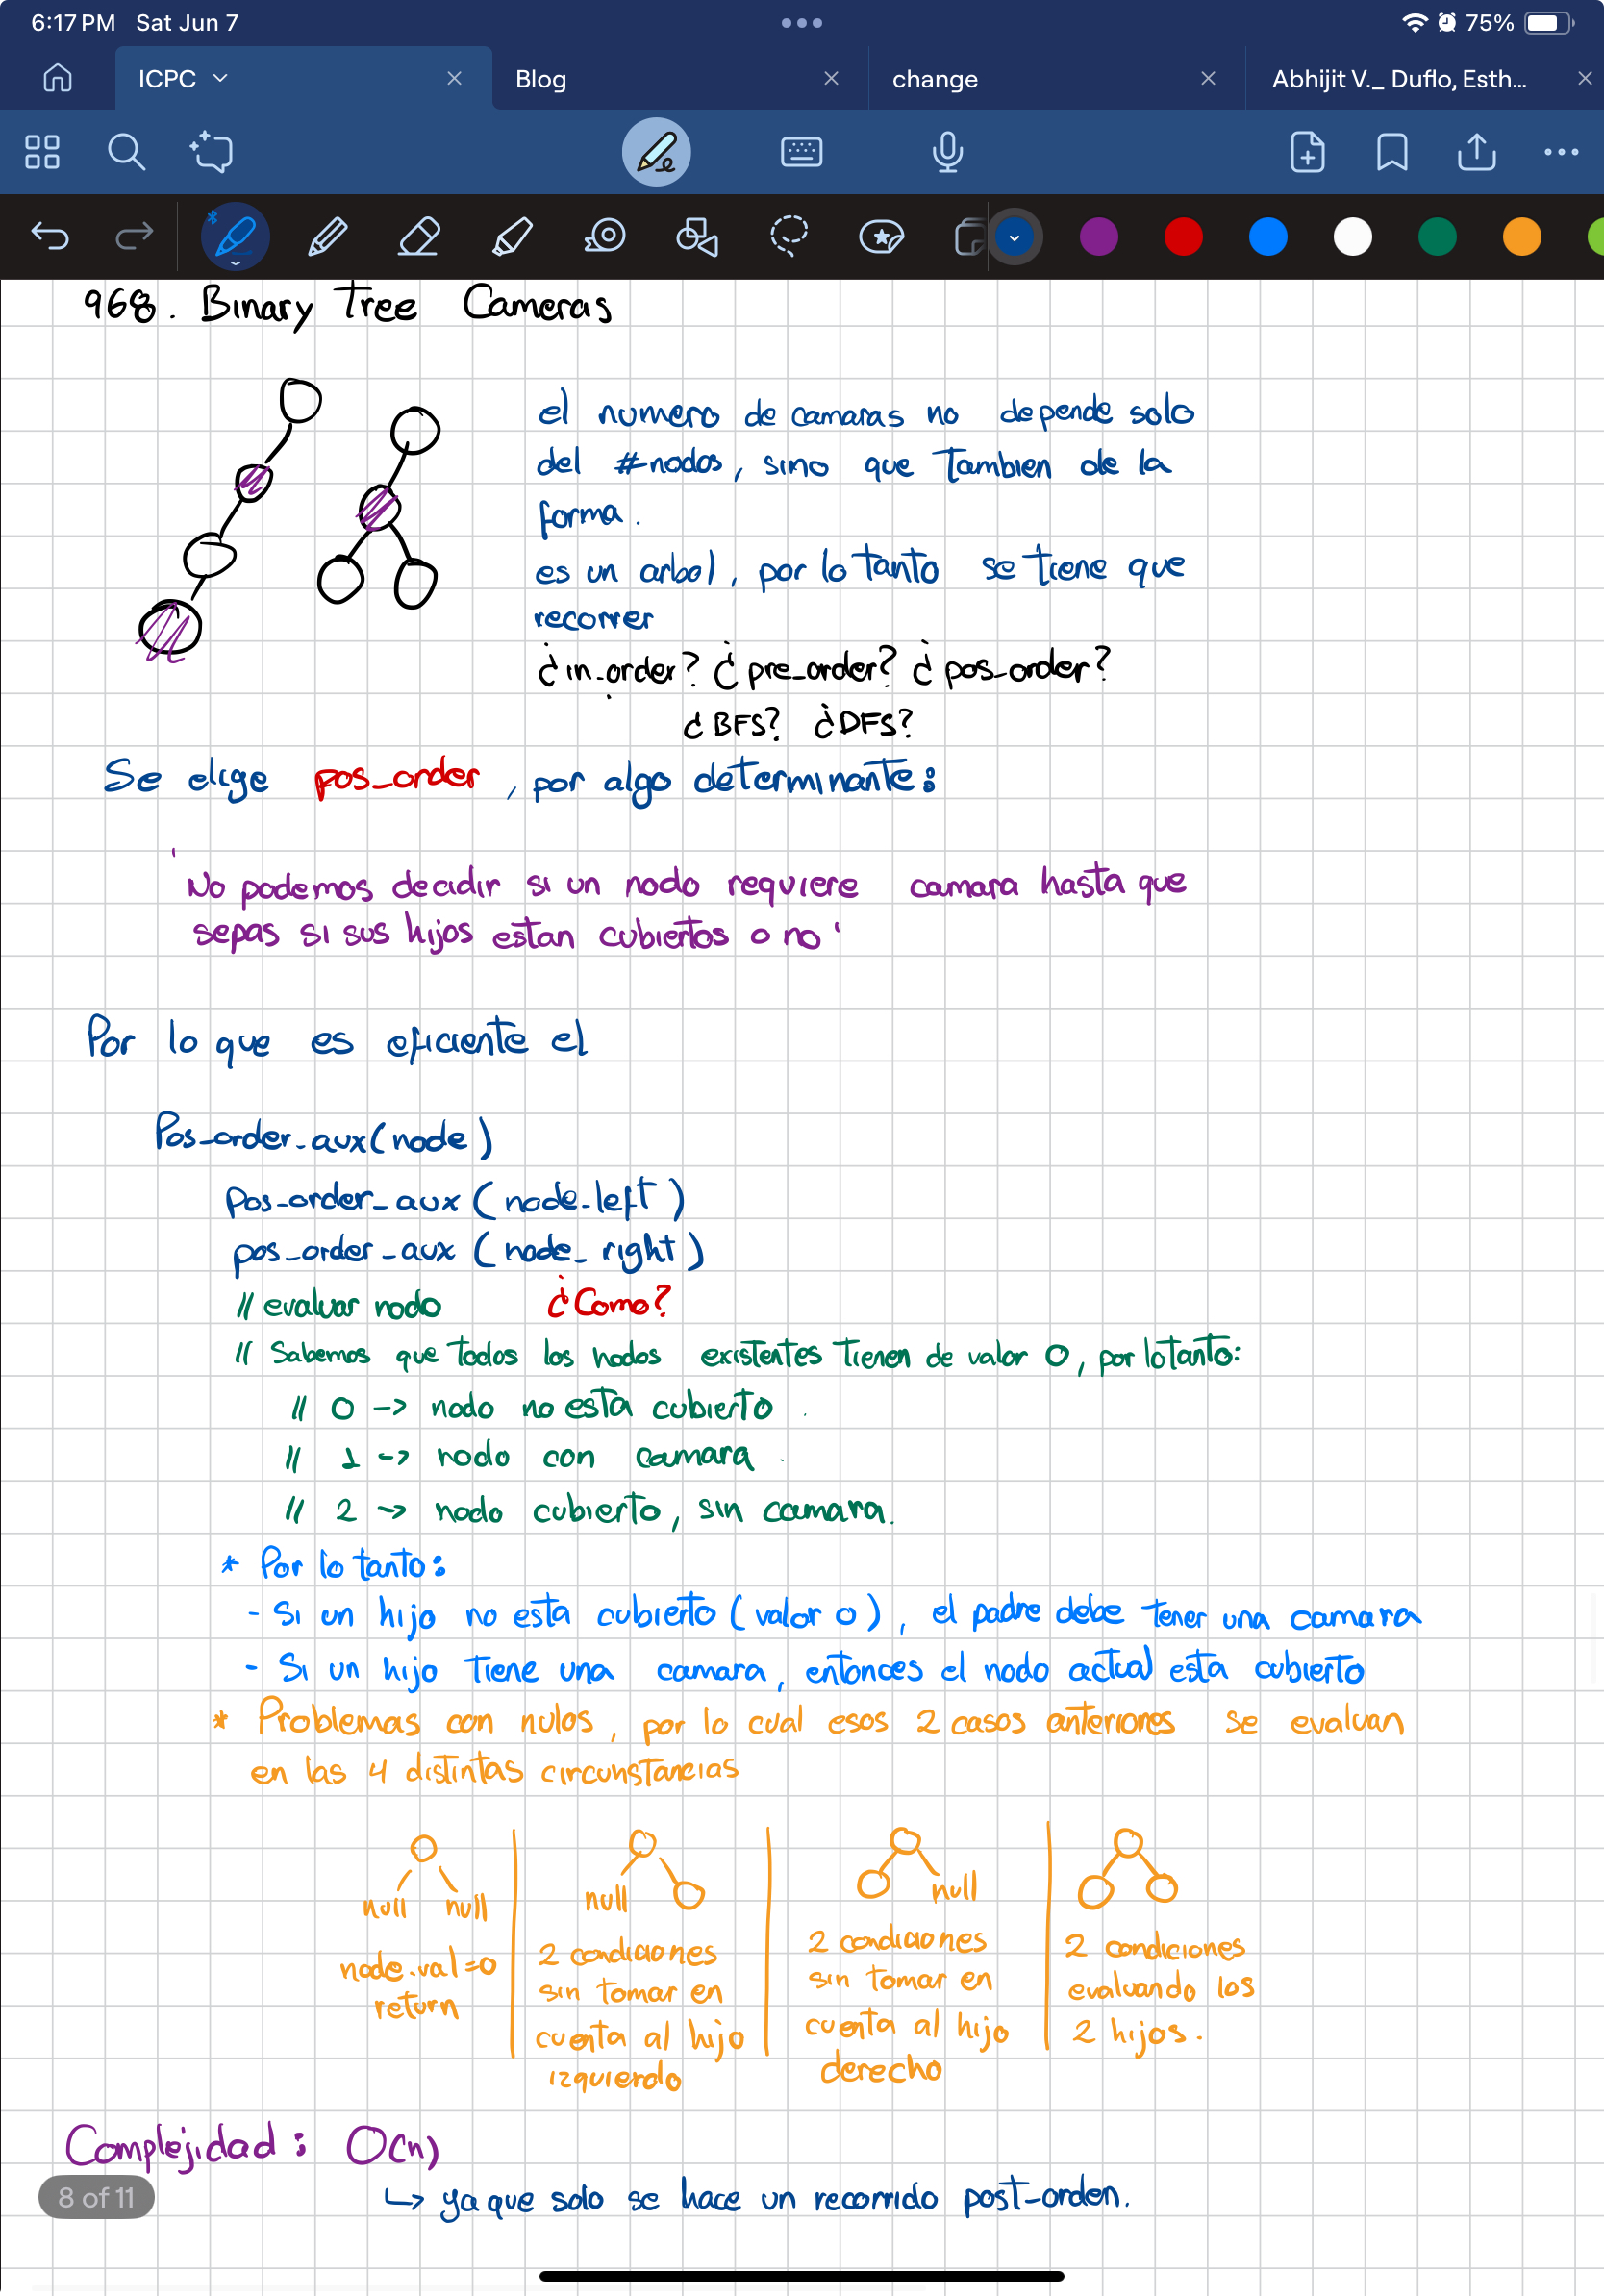 6:17 PM Sat Jun 7
75%
ICPC
Blog
change
Abhijit V._ Duflo, Esth...
968. Binary Tree Cameras
el numero de camaras no depende solo
del #nodos, sino que Tambien de la
forma.
es un arbol, por lo tanto se tiene que
recorrer
¿in_order? ¿pre_order? ¿pos_order?
¿BFS? ¿DFS?
Se elige pos_order, por algo determinante:
'No podemos decidir si un nodo requiere camara hasta que
sepas si sus hijos estan cubiertos o no'
Por lo que es eficiente el
Pos_order_aux(node)
pos_order_aux (node_left)
pos_order_aux (node_right)
// evaluar nodo ¿Como?
// Sabemos que todos los nodos existentes tienen de valor 0, por lo tanto:
// 0 -> nodo no esta cubierto.
// 1 -> nodo con camara.
// 2 -> nodo cubierto, sin camara.
* Por lo tanto:
- Si un hijo no esta cubierto (valor 0), el padre debe tener una camara
- Si un hijo tiene una camara, entonces el nodo actual esta cubierto
* Problemas con nulos, por lo cual esos 2 casos anteriores se evaluan
en las 4 distintas circunstancias
null null
node.val=0
return
null
2 condiciones
sin tomar en
cuenta al hijo
izquierdo
null
2 condiciones
sin tomar en
cuenta al hijo
derecho
2 condiciones
evaluando los
2 hijos.
Complejidad: O(n)
↳ ya que solo se hace un recorrido post-orden.
8 of 11